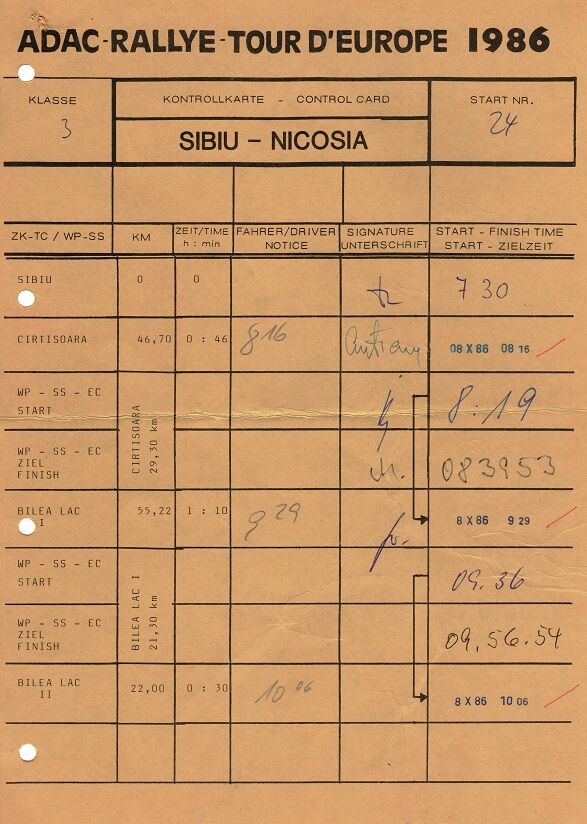 ADAC-RALLYE-TOUR D'EUROPE 1986
KLASSE
3
KONTROLLKARTE - CONTROL CARD
SIBIU - NICOSIA
START NR.
24
ZK-TC / WP-SS
KM
ZEIT/TIME
h : min
FAHRER/DRIVER
NOTICE
SIGNATURE
UNTERSCHRIFT
START - FINISH TIME
START - ZIELZEIT
SIBIU 0 0 7 30
CIRTISOARA 46,70 0 : 46 816 08 X 86 08 16
WP - SS - EC
START
8:19
CIRTISOARA
29,30 km
WP - SS - EC
ZIEL
FINISH
083953
BILEA LAC
I
55,22 1 : 10 9 29 8 X 86 9 29
WP - SS - EC
START
09.36
BILEA LAC I
21,30 km
WP - SS - EC
ZIEL
FINISH
09.56.54
BILEA LAC
II
22,00 0 : 30 10 06 8 X 86 10 06